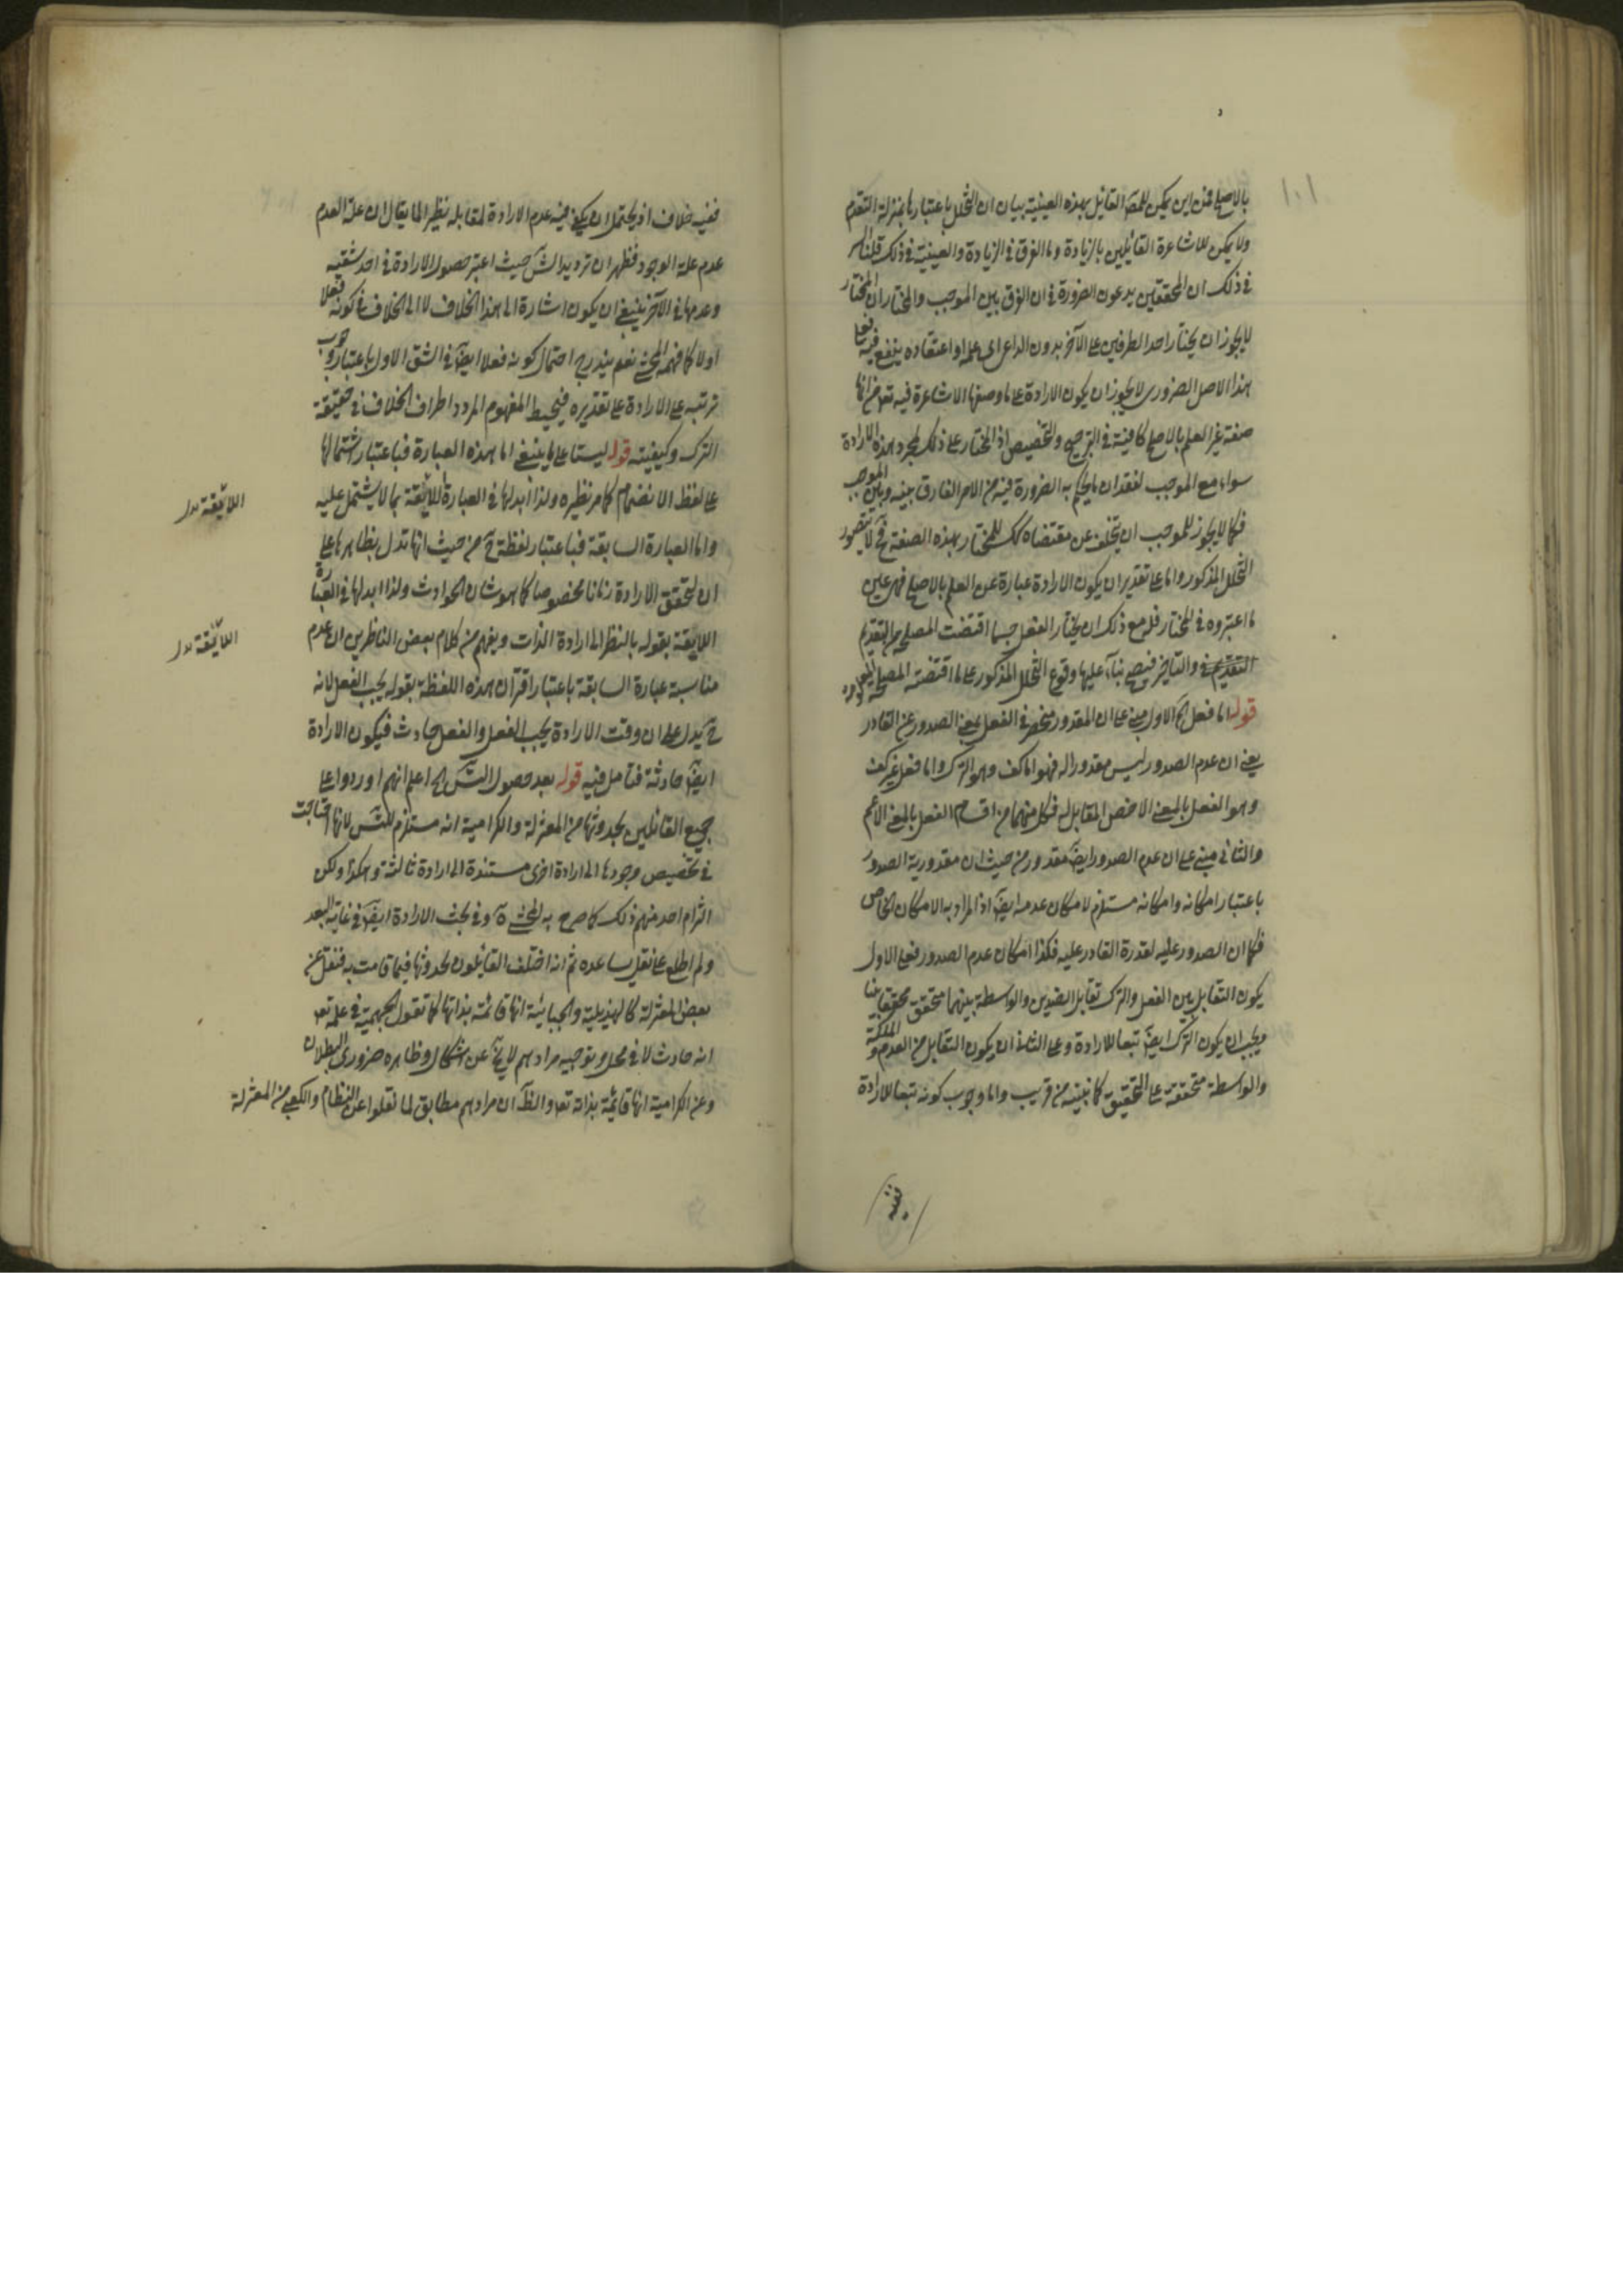 ١٠١
بالاصلح فمن اين يمكن للمص القائل بهذه العينية بيان ان التخلل باعتبارها بمنزلة التقدم
ولا يمكن للاشاعرة القائلين بالزيادة وما الفرق في الزيادة والعينية في ذلك قلنا السر
في ذلك ان المحققين يدعون الضرورة في ان الفرق بين الموجب والمختار ان المختار
لا يجوز ان يختار احد الطرفين على الآخر بدون الداعي اي علمه او اعتقاده بنفع فيه فعلى
هذا الاصل الضروري لا يجوز ان يكون الارادة على ما وصفها الاشاعرة فيه تعم من انها
صفة غير العلم بالاصلح كافية في الترجيح والتخصيص اذ المختار على ذلك بمجرد هذه الارادة
سواء مع الموجب لفقدان ما يحكم به الضرورة فيه من الامر الفارق بينه وبين الموجب
فكما لا يجوز للموجب ان يتخلف عن مقتضاه كك للمختار بهذه الصفة فح لا يتصور
التخلل المذكور واما على تقدير ان يكون الارادة عبارة عن العلم بالاصلح فهي عين
ما اعتبروه في المختار فله مع ذلك ان يختار الفعل حسبما اقتضت المصلحة من التقديم
التقديم والتاخير فيصح بناء عليها وقوع التخلل المذكور على ما اقتضته المصلحة
قوله اما فعل الخ الاول مبني على ان المقدور منحصر في الفعل بمعنى الصدور عن القادر
يعني ان عدم الصدور ليس مقدورا له فهو اما كف وهو الترك واما فعل غير كف
وهو الفعل بالمعنى الاخص المقابل له فكل منهما من اقسام الفعل بالمعنى الاعم
والثاني مبني على ان عدم الصدور ايض مقدور من حيث ان مقدورية الصدور
باعتبار امكانه وامكانه مستلزم لامكان عدمه ايض اذ المراد به الامكان الخاص
فكما ان الصدور عليه لقدرة القادر عليه فكذا امكان عدم الصدور فعلى الاول
يكون التقابل بين الفعل والترك تقابل الضدين والواسطة بينهما متحقق محققا بينا
ويجب ان يكون الترك ايض تبعا للارادة وعلى الثاني ان يكون التقابل من العدم والملكة
والواسطة متحققة على التحقيق كما نبينه من قريب واما وجوب كونه تبعا للارادة
ففيه
ففيه خلاف اذ يحتمل ان يكفي فيه عدم الارادة لمقابله نظير الما يقال ان علة العدم
عدم علة الوجود فظهر ان ترديد الش حيث اعتبر حصول الارادة في احد شقيه
وعدمها في الآخر ينبغي ان يكون اشارة الى هذا الخلاف لا الى الخلاف في كونه فعلا
اولا كما فهمه المحشي نعم يندرج احتمال كونه فعلا ايض في الشق الاول باعتبار وجوب
ترتبه على الارادة على تقديره فيحيط المفهوم المردد اطراف الخلاف في حقيقة
الترك وكيفيته قوله ليستا على ما ينبغي اما هذه العبارة فباعتبار اشتمالها
على لفظ الانضمام كما مر نظيره ولذا ابدلها في العبارة اللايقة بما لا يشتمل عليه
واما العبارة السابقة فباعتبار لفظة ح من حيث انها تدل بظاهرها على
ان لتحقق الارادة زمانا مخصوصا كما هو شان الحوادث ولذا ابدلها في العبارة
اللايقة بقوله بالنظر الى ارادة الذات ويفهم من كلام بعض الناظرين ان عدم
مناسبة عبارة السابقة باعتبار اقتران هذه اللفظة بقوله يجب الفعل لانه
ح يدل على ان وقت الارادة يجب الفعل والفعل حادث فيكون الارادة
ايض حادثة فتامل فيه قوله بعد حصول التس الخ اعلم انهم اوردوا على
جميع القائلين بحدوثها من المعتزلة والكرامية انه مستلزم للتس لانها احتاجت
في تخصيص وجودها الى ارادة اخرى مستندة الى ارادة ثالثة وهكذا ولكن
التزام احد منهم ذلك كما صرح به المحشي وفي بحث الارادة ايض في غاية البعد
ولم اطلع على نقل يساعده ثم انه اختلف القايلون بحدوثها فيما قامت به فنقل عن
بعض المعتزلة كالهذيلية والجبائية انها قائمة بذاتها كما تقول الجهمية في علمه تعم
انه حادث لا في محل وتوجيه مرادهم لا يخ عن اشكال وظاهره ضروري البطلان
وعن الكرامية انها قائمة بذاته تعم والظ ان مرادهم مطابق لما نقلوا عن النظام والكعبي من المعتزلة
اللايقة بدل
اللايقة بدل